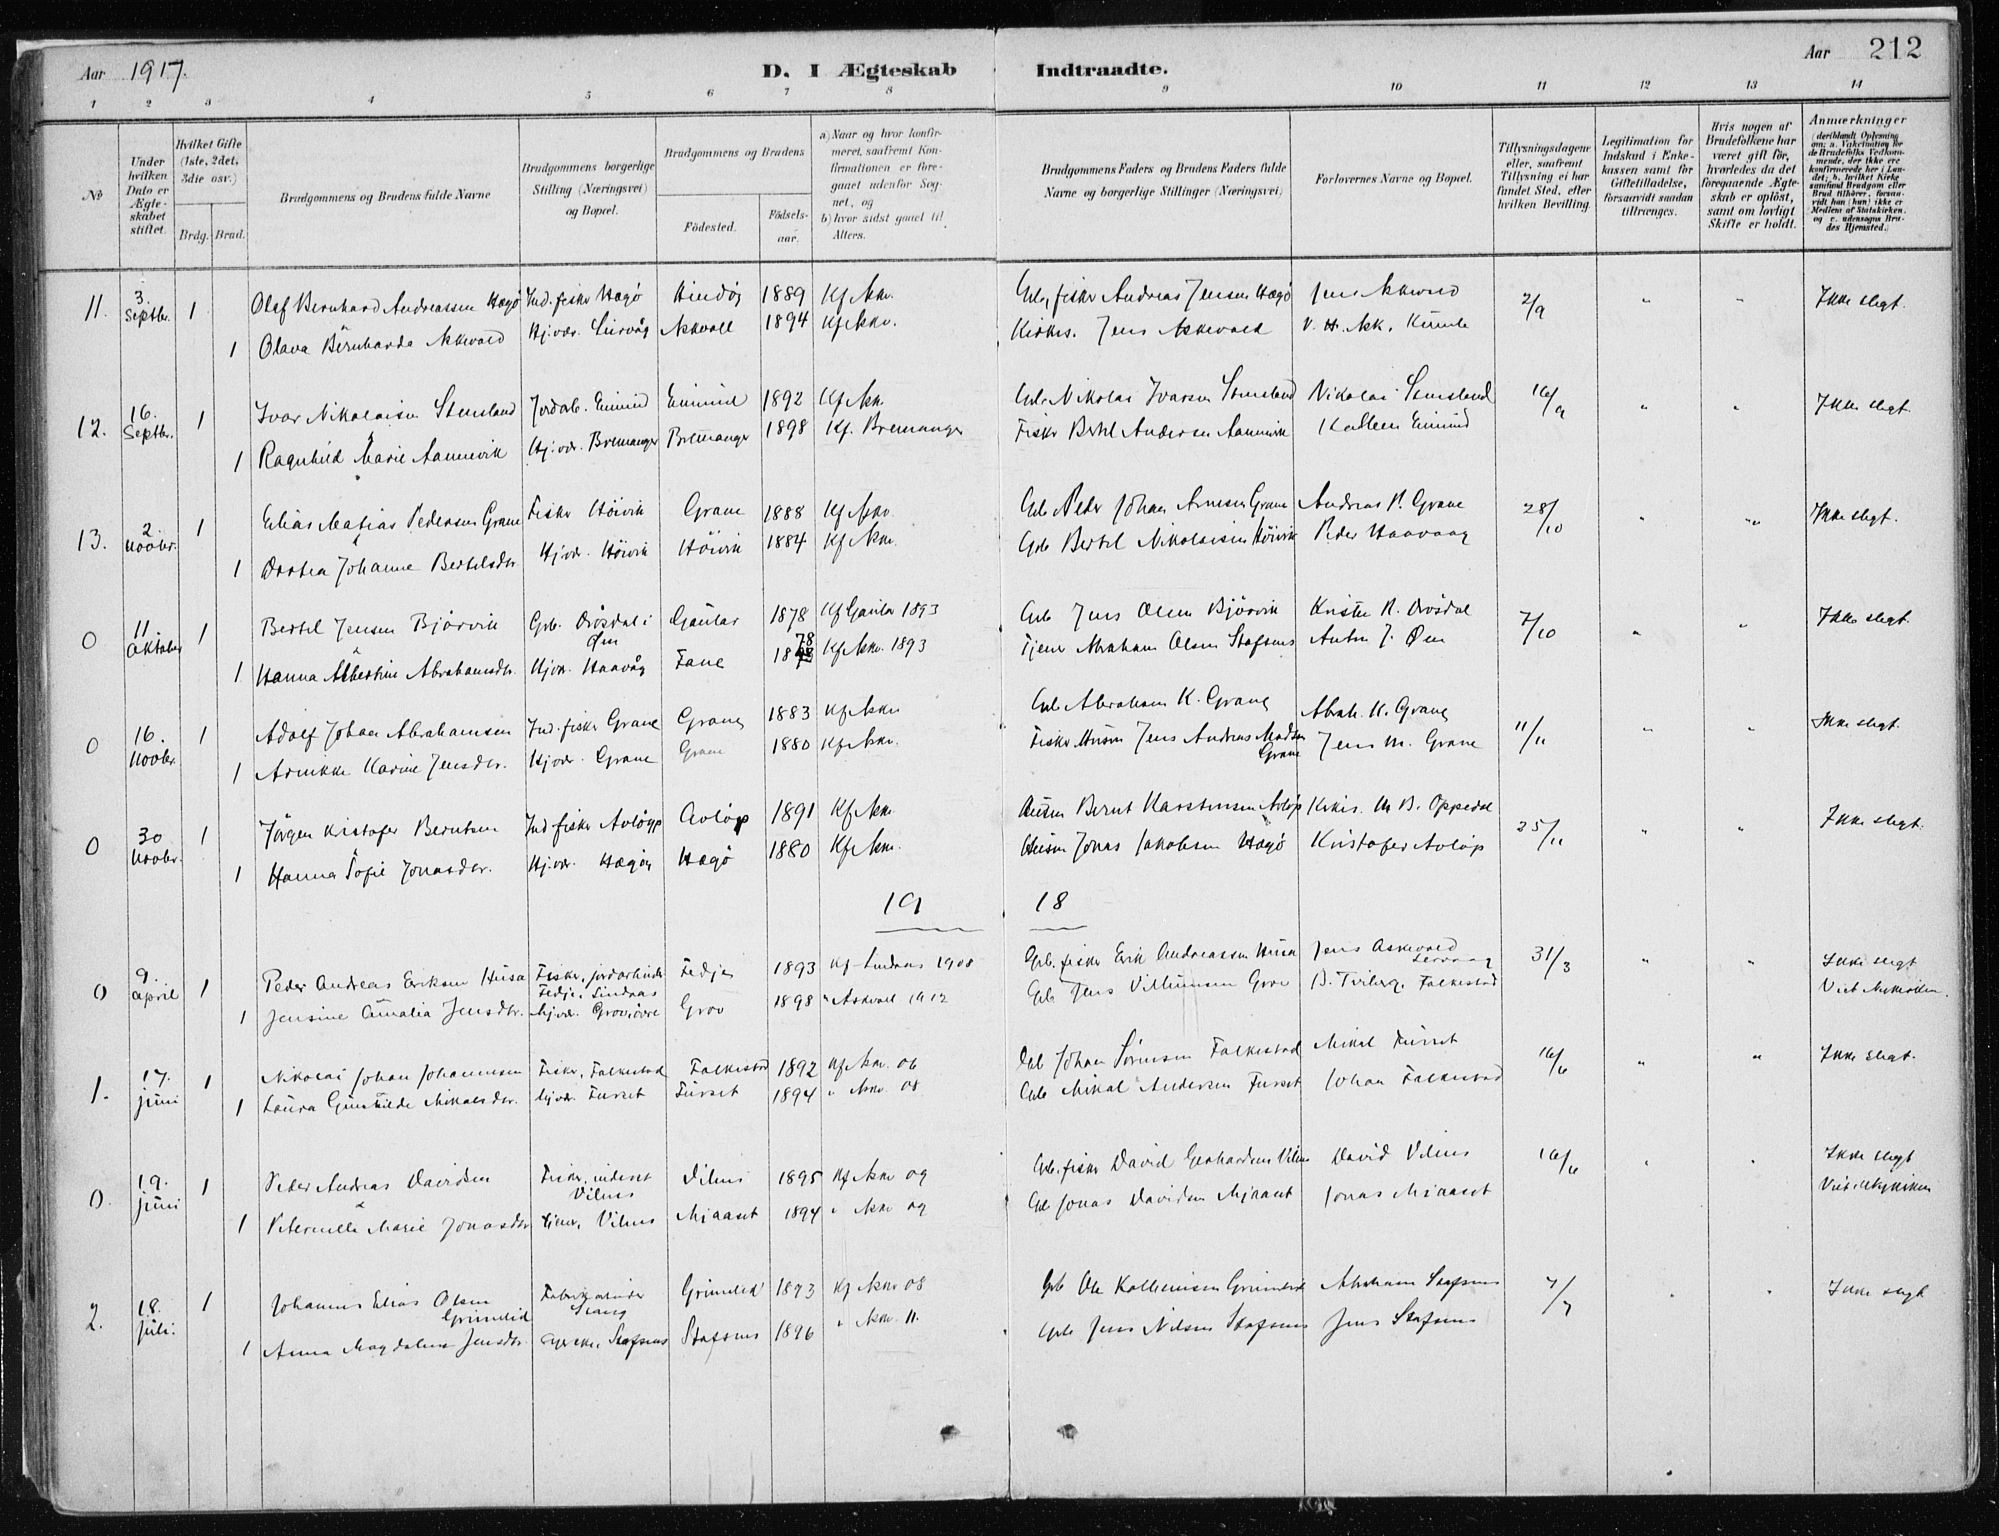 Aar 1917.
D. I Ægteskab Indtraadte.
Aar 212
1 2 3 4 5 6 7 8 9 10 11 12 13 14
No
Under hvilken Dato er Ægteskabet stiftet.
Hvilket Gifte (1ste, 2det, 3die osv.)
Brdg. Brud.
Brudgommens og Brudens fulde Navne
Brudgommens borgerlige Stilling (Næringsvei) og Bopæl.
Brudgommens og Brudens
Fødested. Fødselsaar.
a) Naar og hvor konfirmeret, saafremt Konfirmationen er foregaaet udenfor Sognet, og
b) hvor sidst gaaet til Alters.
Brudgommens Faders og Brudens Faders fulde Navne og borgerlige Stillinger (Næringsvei)
Forlovernes Navne og Bopæl.
Tillysningsdagene eller, saafremt Tillysning ei har fundet Sted, efter hvilken Bevilling.
Legitimation for Indskud i Enkekassen samt for Giftetilladelse, forsaavidt saadan tiltrænges.
Hvis nogen af Brudefolkene har været gift før, hvorledes da det foregaaende Ægteskab er opløst, samt om lovligt Skifte er holdt.
Anmærkninger
(deriblandt Oplysning om: a. Vakcination for de Brudefolks Vedkommende, der ikke ere konfirmerede her i Landet; b. hvilket Kirkesamfund Brudgom eller Brud tilhører, forsaavidt han (hun) ikke er Medlem af Statskirken, og c. udensogns Brudes Hjemsted.)
11. 3. Septbr. 1 Olaf Bernhard Andreassen Hægø Ind. fisker Hægø Hindøy 1889 Kf Askv. Gbr, fisker Andreas Jensen Hægø Jens Askvold 2/9 " " Ikke slegt.
1 Olava Bernharda Askvold Hj. vær. Askvoll 1894 Kf Askv. Kirkes. Jens Askevold V. H. Ask.
12. 16. Septbr. 1 Ivar Nikolaisen Stensland Jordab. 1892 Kf Askv. Gbr Nikolai Ivarsen Stensland Nikolai Stensland 16/9 " " Ikke slegt.
1 Ragnhild Marie Hj. vær. Bremanger Bremanger 1898 Kf. Bremanger Fisker Bertel Andersen
13. 2 Novbr. 1 Elias Matias Pedersen Grane Fisker Høivik Grane 1888 Kf Askv. Gbr Peder Johan Arnesen Grane Andreas P. Grane 28/10 " " Ikke slegt.
1 Dortea Johanne Bertelsdtr Hj. vær. Høivik Høivik 1884 Kf Askv. Gbr Bertel Nikolaisen Høivik Peder Haavaag
0 11. Oktober 1 Bertel Jensen Bjørvik Gbr. Drøsdal i Øen Gaular 1878 Kf Gaular 1893 Gbr Jens Olsen Bjørvik Krister R. Drøsdal 7/10 " " Ikke slegt.
1 Hanna Albertine Abrahamsdtr. Hj. vær. Haavåg Fane 1878 Kf Askv. 1893 Tjener Abraham Olsen Stafsnes Anton J. Øen
0 16. Novbr. 1 Adolf Johan Abrahamsen Ind. fisker Grane Grane 1883 Kf Askv Gbr Abraham K. Grane Abrah. K. Grane 11/11 " " Ikke slegt.
1 Annikke Karine Jensdtr. Hj. vær. Grane Grane 1880 Kf Askv. Fisker Husm Jens Andreas Madsen Grane Jens M. Grane
0 30 Novbr. 1 Jørgen Kristofer Berntsen Ind fisker Avløyp Avløyp 1891 Kf Askv Husm Bernt Karstensen Avløp Kirkes. M B. Oppedal 25/11 " " Ikke slegt.
1 Hanna Sofie Jonasdtr. Hj. vær. Hægøy Hægø 1880 Kf Askv. Husm Jonas Jakobsen Hægø Kristofer Avløp
19 18
0 9. April 1 Peder Andreas Eriksen Husa Fisker, jordarbeider Fedje, Lindaas Fedje 1893 Kf Lindaas 1908 Gbr. fisker Erik Andreassen Husa Jens Askevold 31/3 " " Ikke slegt
1 Jensine Amalia Jensdtr. hj. vær. Grov 1898 " Askvoll 1912 Gbr Jens Villumsen Grov B. Falkestad
1. 17. Juni 1 Nikolai Johan Johannesen Fisker, Falkestad Falkestad 1892 Kf Askv. 06 Gbr Johan Sørensen Falkestad Mikal Furset 16/6 " " Ikke slegt.
1 Laura Gunhilde Mikalsdtr. hj. vær. Furset Furset 1894 " Askv 08 Gbr Mikal Andersen Furset Johan Falkestad
0. 19. Juni 1 Peder Andreas Davidsen Fisker, inderst Vilnes Vilnes 1895 Kf Askv 09 Gbr. fisker David Gerhardsen Vilnes David Vilnes 16/6 Ikke slegt
1 Peternille Marie Jonasdtr Tjener, Vilnes Mjaaset 1894 " Askv 09 Gbr Jonas Davidsen Mjaaset Jonas Mjaaset
2. 18. Juli. 1 Johannes Elias Olsen Grimelid Fabrikarbeider Stang Grimelid 1893 Kf Askv 08 Gbr Ole Grimelid Abraham Stafsnes 7/7 " " Ikke slegt
1 Anna Magdalena Jensdtr Stafsnes Stafsnes 1896 " Askv. 11. Gbr Jens Nilsen Stafsnes Jens Stafsnes